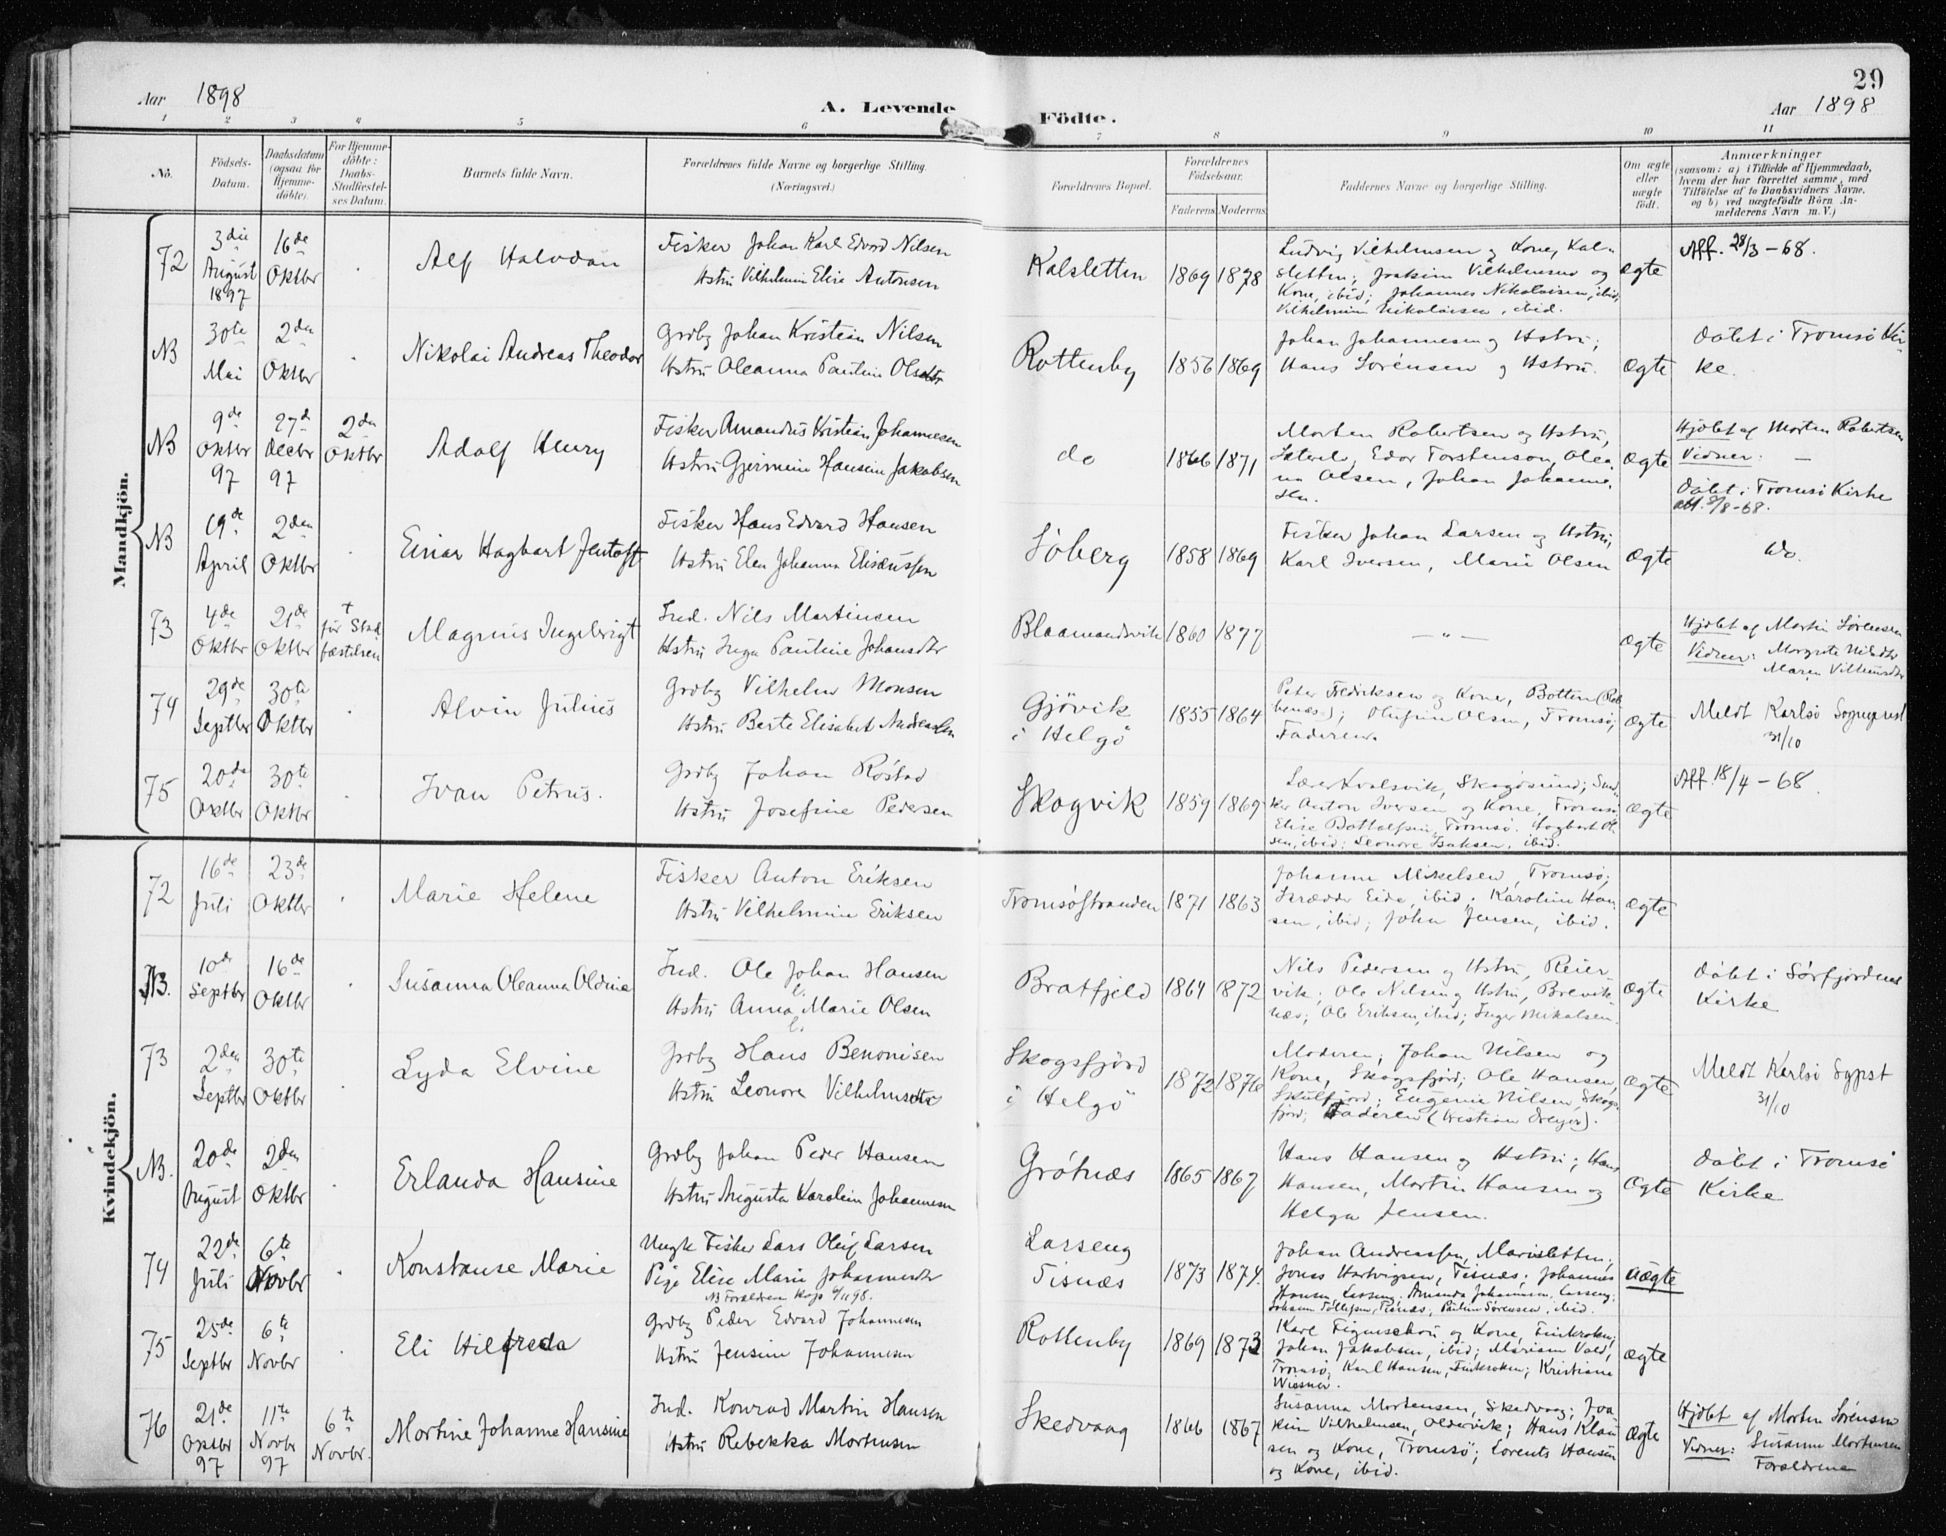 29
Aar 1898
A. Levende Födte.
Aar 1898
1 2 3 4 5 6 7 8 9 10 11
No.
Födsels-
Datum.
Daabsdatum
(ogsaa for
Hjemme-
döbte).
For Hjemme-
döbte:
Daabs-
Stadfæstel-
ses Datum.
Barnets fulde Navn.
Forældrenes fulde Navne og borgerlige Stilling.
(Næringsvei.)
Forældrenes Bopæl.
Forældrenes
Födselsaar.
Faderens Moderens
Faddernes Navne og borgerlige Stilling.
Om ægte
eller
uægte
födt.
Anmærkninger
(saasom: a) i Tilfælde af Hjemmedaab,
hvem der har forrettet samme, med
Tilföielse af to Daabsvidners Navne,
og b) ved uægtefödte Börn An-
melderens Navn m. V.)
Mandkjön.
72
3die
August
1897
16de
Oktbr
Alf Halvdan
Fisker Johan Karl Edvard Nilsen
Hstru Vilhelmine Elise Antonsen
Kalsletten
1869 1878
Ludvig Vilhelmsen og Kone, Kal-
sletten; Joakim Vilhelmsen og
Kone, ibid; Johannes Nikolaisen, ibid;
Vilhelmine Nikolaisen, ibid.
ægte
Aff. 28/3-68.
NB
30te
Mai
2den
Oktbr
Nikolai Andreas Theodor
Grdby Johan Kristian Nilsen
Hstru Oleanna Pauline Olsdtr
Rottenby
1856 1869
Johan Johannesen og Hstru;
Hans Sörensen og Hstru.
ægte
Döbt i Tromsö Kir-
ke.
NB
9de
Oktbr
97
27d
Decbr
97
2den
Oktbr
Adolf Henry
Fisker Amandus Kristian Johannesen
Hstru Gjermine Hansine Jakobsen
do
1866 1871
Morten Robertsen og Hstru,
Edor Torstenson, Olea-
na Olsen, Johan Johanne-
sen.
ægte
Hjdöbt af Morten Robertsen
Vidner: —
Döbt i Tromsö Kirke
att. 5/8-68.
NB
19de
April
2den
Oktbr
Einar Hagbart Jentoft
Fisker Hans Edvard Hansen
Hstru Elen Johanna Elisæussen
Söberg
1858 1869
Fisker Johan Larsen og Hstru,
Karl Iversen, Marie Olsen
ægte
do.
73
4de
Oktbr
21de
Oktbr
†
för Stad-
fæstelsen
Magnus Ingebrigt
Ind. Nils Martinsen
Hstru Inga Pauline Johansdtr
Blaamandsvik
1860 1877
— " —
ægte
Hjdöbt af Martin Sörensen
Vidner: Margrete Nilsdtr
Maren Vilhelmsdtr
74
29de
Septbr
30te
Oktbr
Alvin Julius
Grdby Vilhelm Monsen
Hstru Berte Elisabet Andreassen
Gjövik
i Helgö
1855 1864
Peter Fredriksen og Kone, Botten (Reb-
benæs); Olufine Olsen, Tromsö;
Faderen.
ægte
Meldt Karlsö Sognepræst
31/10
75
20de
Oktbr
30te
Oktbr
Ivan Petrus.
Grdby Johan Röstad
Hstru Josefine Pedersen
Skogvik
1859 1869
Lærer Kvalsvik, Skogösund; Snd-
ker Anton Iversen og Kone, Tromsö
Elise Bottolfsen, Tromsö. Hagbart Ol-
sen, ibid; Leonore Isaksen, ibid.
ægte
Aff. 18/4-68.
Kvindekjön.
72
16de
Juli
23de
Oktbr
Marie Helene
Fisker Anton Eriksen
Hstru Vilhelmine Eriksen
Tromsöstranden
1871 1863
Johanne Mikelsen, Tromsö;
Skrædder Eide, ibid. Karoline Han-
sen, ibid; John Jensen, ibid.
ægte
NB.
10de
Septbr
16de
Oktbr
Susanna Oleanna Oldine
Ind. Ole Johan Hansen
Hstru Anna Marie Olsen
Bratfjeld
1864 1872
Nils Pedersen og Hstru, Reier-
vik; Ole Nilsen og Hstru, Breivik-
næs; Ole Eriksen, ibid; Inger Mikalsen.
ægte
Döbt i Sörfjordens
Kirke
73
2den
Septbr
30te
Oktbr
Lyda Elvine
Grdby Hans Benonisen
Hstru Leonore Vilhelmsdtr
Skogsfjord
i Helgö
1872 1876
Moderen; Johan Nilsen og
Kone, Skogsfjord; Ole Hansen,
Skulfjord; Eugenie Nilsen, Skogs-
fjord; Faderen (Kristian Dreyer).
ægte
Meldt Karlsö Sgpst
31/10
NB.
20de
August
2den
Oktbr
Erlanda Hansine
Grdby Johan Peder Hansen
Hstru Augusta Karoline Johannesen
Grötnæs
1865 1867
Hans Hansen og Hstru; Hans
Hansen, Martin Hansen og
Helga Jensen.
ægte
Döbt i Tromsö
Kirke
74
22de
Juli
6te
Novbr
Konstanse Marie
Ungk Fisker Lars Oluf Larsen
Pige Elise Marie Johannesdtr
NB Forældrene kop. 6/11 98.
Larseng
Tisnæs
1873 1874
Johan Andreassen, Marisletten;
Jonas Hartvigsen, Tisnæs; Johannes
Hansen, Larseng; Amanda Johannesen, Larseng;
Johan Tollefsen, Tisnæs, Pauline Sörensen, ibid.
uægte
75
25de
Septbr
6te
Novbr
Eli Hilfreda
Grdby Peder Edvard Johannesen
Hstru Jensine Johannesen
Rottenby
1869 1873
Karl Figenschou og Kone, Finkroken;
Johan Jakobsen, ibid; Mariane Vold,
Tromsö; Karl Hansen, Finkroken; Kristiane
Wiesner.
ægte
76
21de
Oktbr
97
11te
Novbr
97
6te
Novbr.
Mortine Johanne Hansine
Ind. Konrad Martin Hansen
Hstru Rebekka Mortensen
Skedvaag
1866 1867
Susanna Mortensen, Skedvaag; Joa-
kim Vilhelmsen, Oldervik; Hans Klau-
sen og Kone, Tromsö; Lorents Hansen
og Kone, ibid.
ægte
Hjdöbt af Morten Sörensen
Vidner: Susanne Mortensen
Forældrene